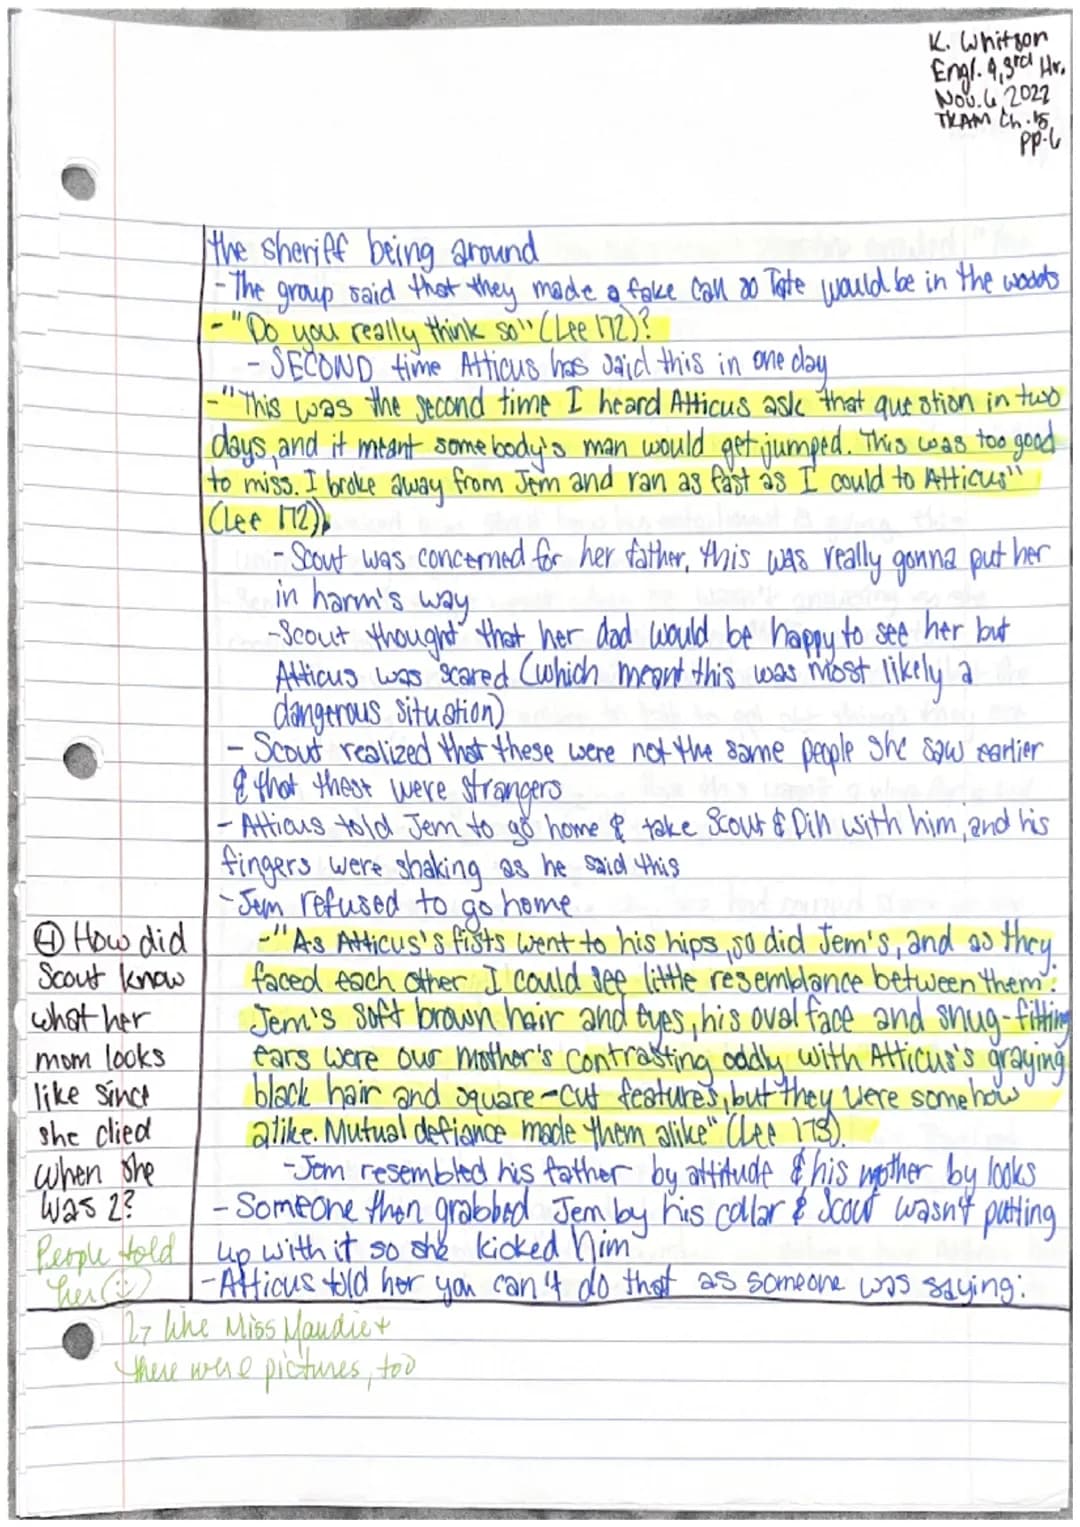 K. Whitson
Engl. 9, 3rd Hr.
Nov. 6, 2022
TKAM Ch. 15
pp. 6
the sheriff being around
- The group said that they made a fake call so Tate would be in the woods
- "Do you really think so" (Lee 172)?
- SECOND time Atticus has said this in one day
- "This was the second time I heard Atticus ask that question in two
days, and it meant somebody's man would get jumped. This was too good
to miss. I broke away from Jem and ran as fast as I could to Atticus"
(Lee 172).
- Scout was concerned for her father, this was really gonna put her
in harm's way
- Scout thought that her dad would be happy to see her but
Atticus was scared (which meant this was most likely a
dangerous situation)
- Scout realized that these were not the same people she saw earlier
& that these were strangers
- Atticus told Jem to go home & take Scout & Dill with him, and his
fingers were shaking as he said this
- Jem refused to go home
④ How did
Scout know
what her
mom looks
like since
she died
when she
was 2?
People told
her
↳ like Miss Maudie +
there were pictures, too
- "As Atticus's fists went to his hips, so did Jem's, and as they
faced each other I could see little resemblance between them:
Jem's soft brown hair and eyes, his oval face and snug-fitting
ears were our mother's contrasting oddly with Atticus's graying
black hair and square-cut features, but they were somehow
alike. Mutual defiance made them alike" (Lee 173).
- Jem resembled his father by attitude & his mother by looks
- Someone then grabbed Jem by his collar & Scout wasn't putting
up with it so she kicked him
- Atticus told her you can't do that as someone was saying: